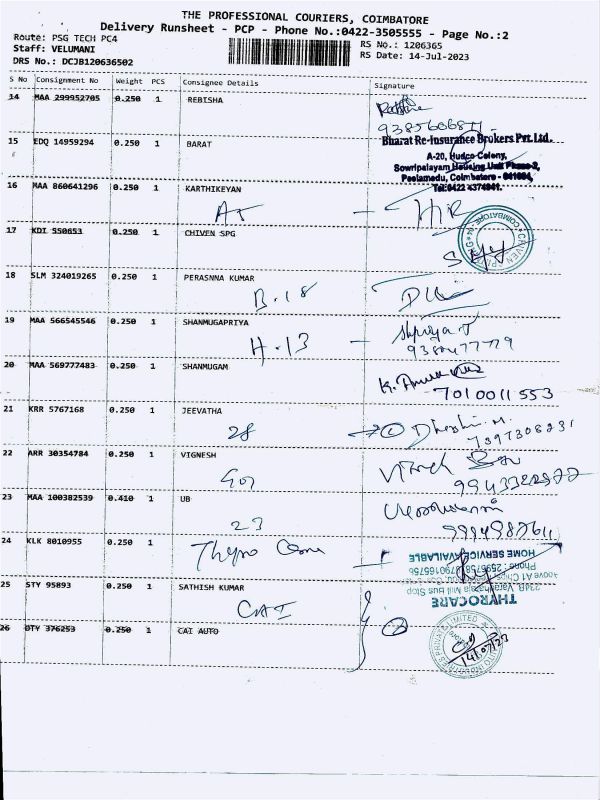 THE PROFESSIONAL COURIERS, COIMBATORE
Delivery Runsheet - PCP - Phone No.:0422-3505555 - Page No.:2
Route: PSG TECH PC4
Staff: VELUMANI
DRS No.: DCJB120636502
RS No.: 1206365
RS Date: 14-Jul-2023
S No Consignment No Weight PCS Consignee Details Signature
14 MAA 299952705 0.250 1 REBISHA
15 EDQ 14959294 0.250 1 BARAT
Bharat Re-Insurance Brokers Pvt.Ltd.
A-20, Hudco Colony,
Sowripalayam Housing Unit Phase-2,
Peelamedu, Coimbatore - 641004,
16 MAA 860641296 0.250 1 KARTHIKEYAN
17 KDI 550653 0.250 1 CHIVEN SPG
18 SLM 324019265 0.250 1 PERASNNA KUMAR
B.18
19 MAA 566545546 0.250 1 SHANMUGAPRIYA
H.13
20 MAA 569777483 0.250 1 SHANMUGAM
7010011553
21 KRR 5767168 0.250 1 JEEVATHA
28
22 ARR 30354784 0.250 1 VIGNESH
23 MAA 100382539 0.410 1 UB
23
24 KLK 8010955 0.250 1
HOME SERVICE AVAILABLE
THYROCARE
25 STY 95893 0.250 1 SATHISH KUMAR
CAI
26 DTY 376253 0.250 1 CAI AUTO
14/07/23